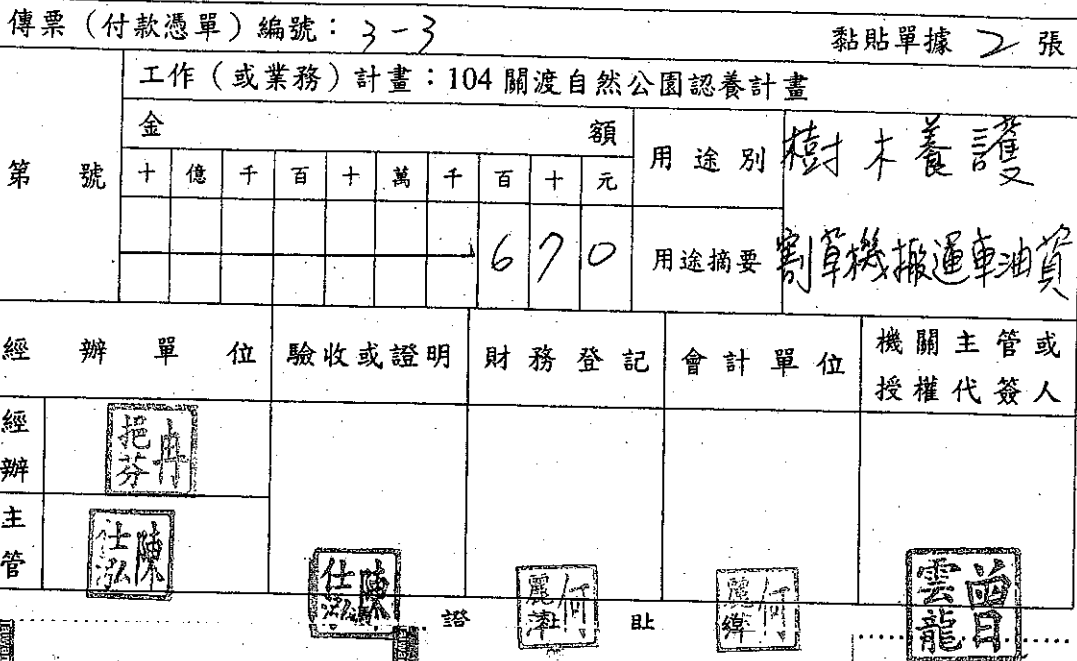 傳票（付款憑單）編號：3-3 黏貼單據 2 張
工作（或業務）計畫：104 關渡自然公園認養計畫
第 號 金 額 用途別 樹木養護
十 億 千 百 十 萬 千 百 十 元
6 7 0 用途摘要 割草機搬運車油資
經辦單位 驗收或證明 財務登記 會計單位 機關主管或授權代簽人
經辦 冉挹芬
主管 陳仕泓 陳仕泓 何麗萍 何麗萍 曾雲龍
證